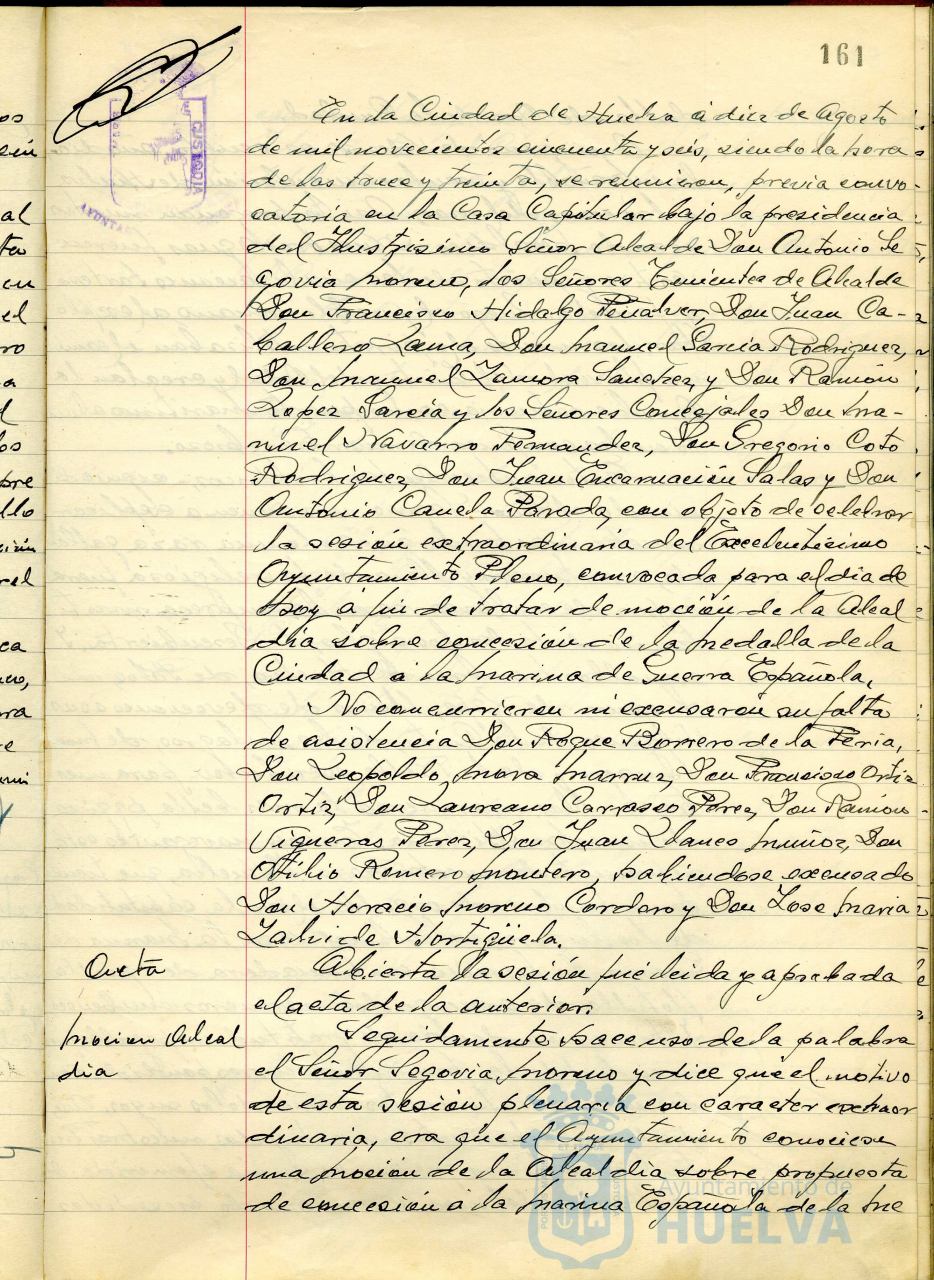 161
En la Ciudad de Huelva á diez de Agosto
de mil novecientos cincuenta y seis, siendo la hora
de las trece y treinta, se reunieron, previa convo-
catoria en la Casa Capitular bajo la presidencia
del Ilustrisimo Señor Alcalde Don Antonio Se
govia Moreno, los Señores Tenientes de Alcalde
Don Francisco Hidalgo Peñalver, Don Juan Ca-
ballero Lama, Don Manuel Garcia Rodriguez,
Don Manuel Zamora Sanchez, y Don Ramón
Lopez García y los Señores Concejales Don Ma-
nuel Navarro Fernandez, Don Gregorio Coto
Rodriguez, Don Juan Encarnación Salas y Don
Antonio Canela Parada, con objeto de celebrar
la sesión extraordinaria del Excelentisimo
Ayuntamiento Pleno, convocada para el dia de
hoy á fin de tratar de moción de la Alcal
dia sobre concesión de la Medalla de la
Ciudad á la Marina de Guerra Española.
No concurrieron ni excusaron su falta
de asistencia Don Roque Borrero de la Feria,
Don Leopoldo Mora Marruz, Don Francisco Ortiz
Ortiz, Don Laureano Carrasco Perez, Don Ramón
Vigueras Perez, Don Juan Llanes Muñoz, Don
Otilio Romero Montero, habiendose excusado
Don Horacio Moreno Cordero y Don Jose Maria
Zalvide Hortigüela.
Acta
Abierta la sesión fué leida y aprobada
el acta de la anterior.
Mocion Alcal
dia
Seguidamente hace uso de la palabra
el Señor Segovia Moreno y dice que el motivo
de esta sesión plenaria con caracter extraor
dinaria, era que el Ayuntamiento conociese
una moción de la Alcaldia sobre propuesta
de concesión á la Marina Española de la Me
Ayuntamiento de
HUELVA